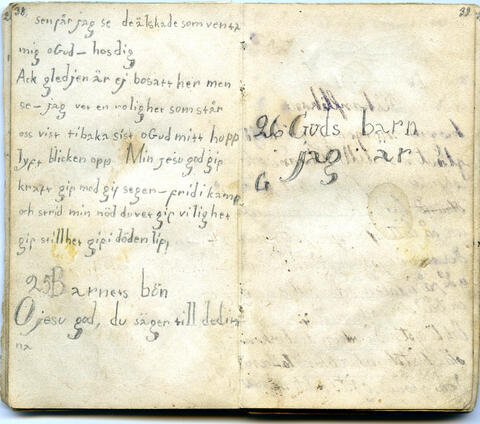 38.
sen får jag se de älskade som venta
mig o Gud – hos dig
Ack gledjen är ej bosatt her men
se – jag vet en rolighet som står
oss vist tibaka sist o Gud mitt hopp
lyft blicken opp Min jesu god gif
kraft gif mod gif seger – frid i kamp
och strid min nöd du vet gif vilighet
gif stillhet gif i döden lif
25 Barnets bön
O jesu god, du säger till de ditt
na
39.
26 Guds barn
jag är
G